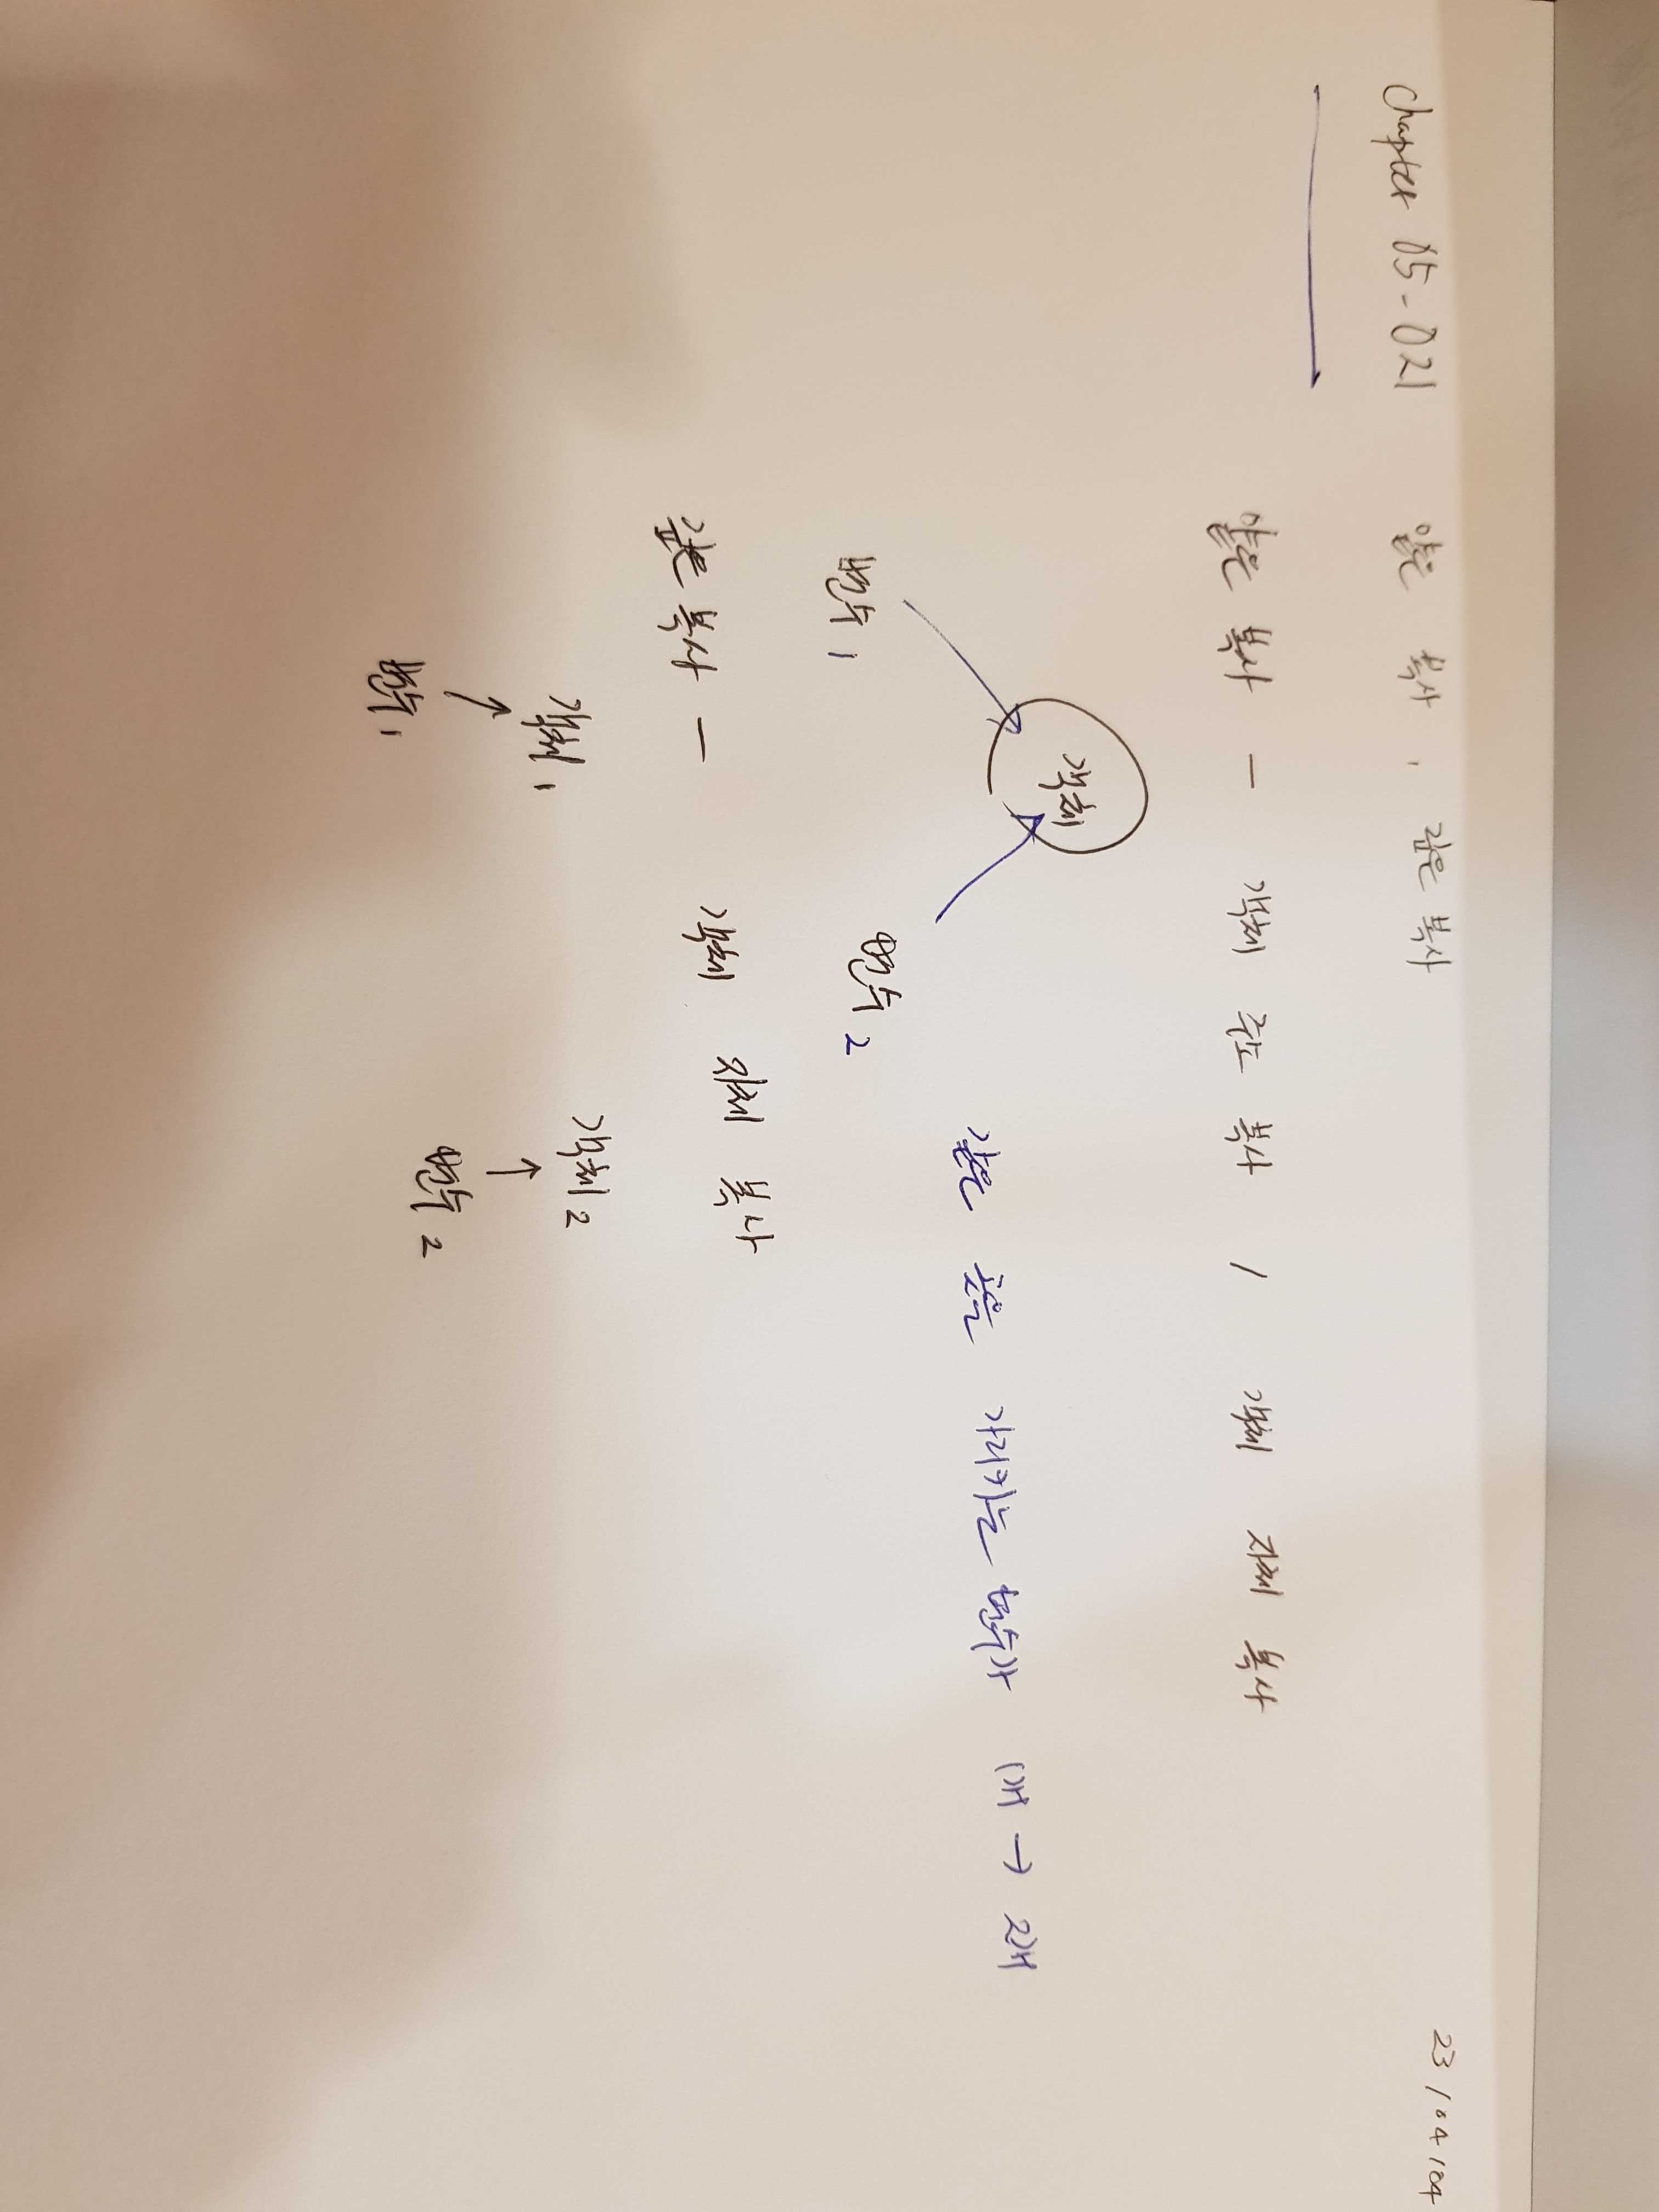 Chapter 05-021 얕은 복사, 깊은 복사 23/04/04
얕은 복사 - 객체 주소 복사 / 객체 자체 복사
객체
같은 곳을 가리키는 변수가 1개 → 2개
변수1 변수2
깊은 복사 - 객체 자체 복사
객체1 객체2
↑ ↑
변수1 변수2